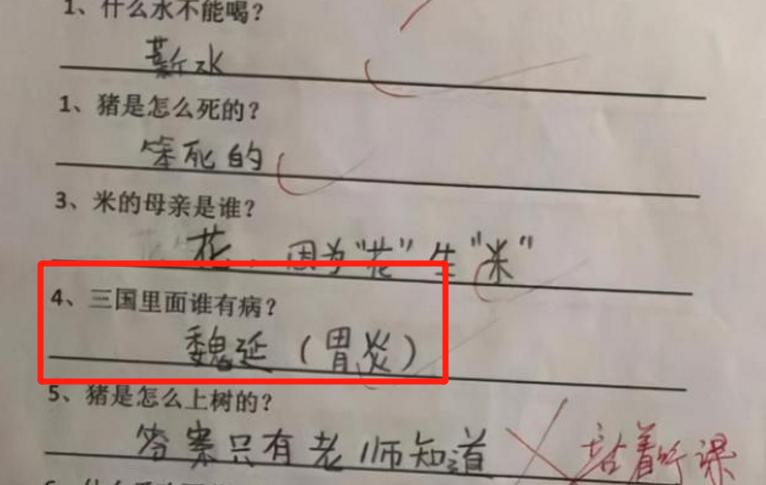 1、什么水不能喝？
薪水
1、猪是怎么死的？
笨死的
3、米的母亲是谁？
花，因为"花"生"米"
4、三国里面谁有病？
魏延（胃炎）
5、猪是怎么上树的？
答案只有老师知道
站着听课